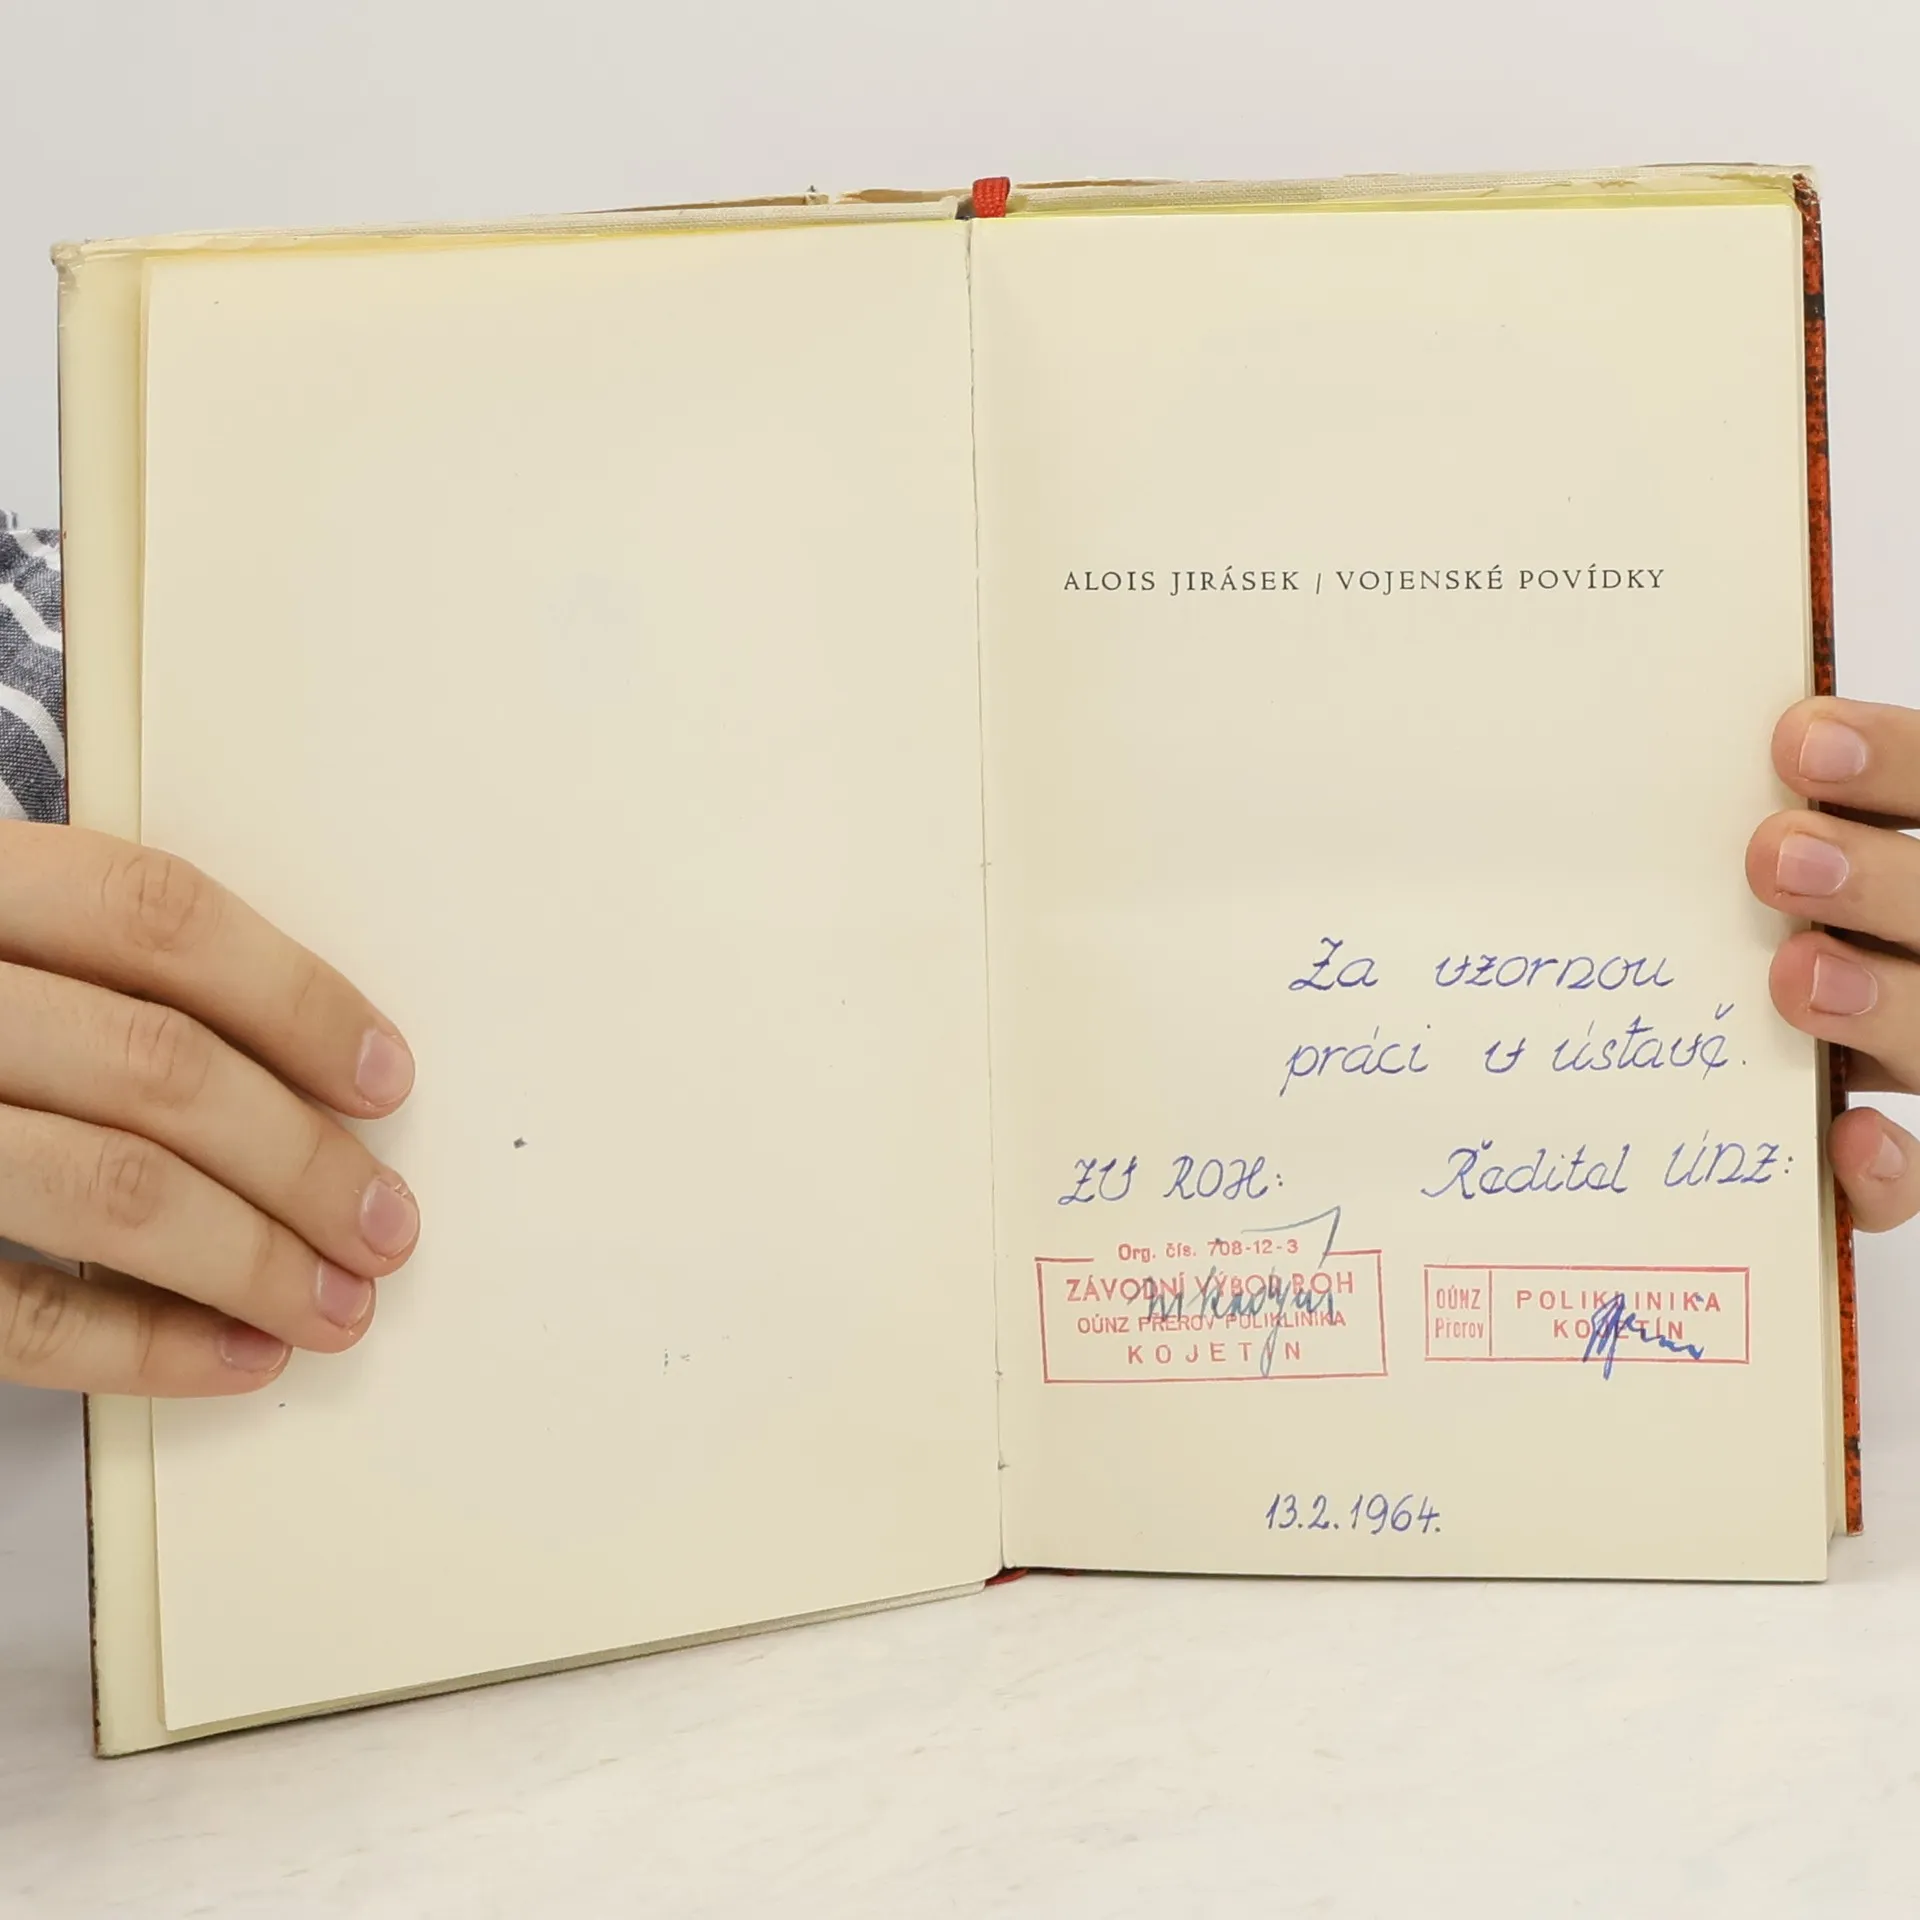 ALOIS JIRÁSEK / VOJENSKÉ POVÍDKY
Za vzornou
práci v ústavě.
ZV ROH:
Ředitel ÚNZ:
Org. čís. 708-12-3
ZÁVODNÍ VÝBOR ROH
OÚNZ PŘEROV POLIKLINIKA
KOJETÍN
OÚNZ
Přerov
POLIKLINIKA
KOJETÍN
13.2.1964.